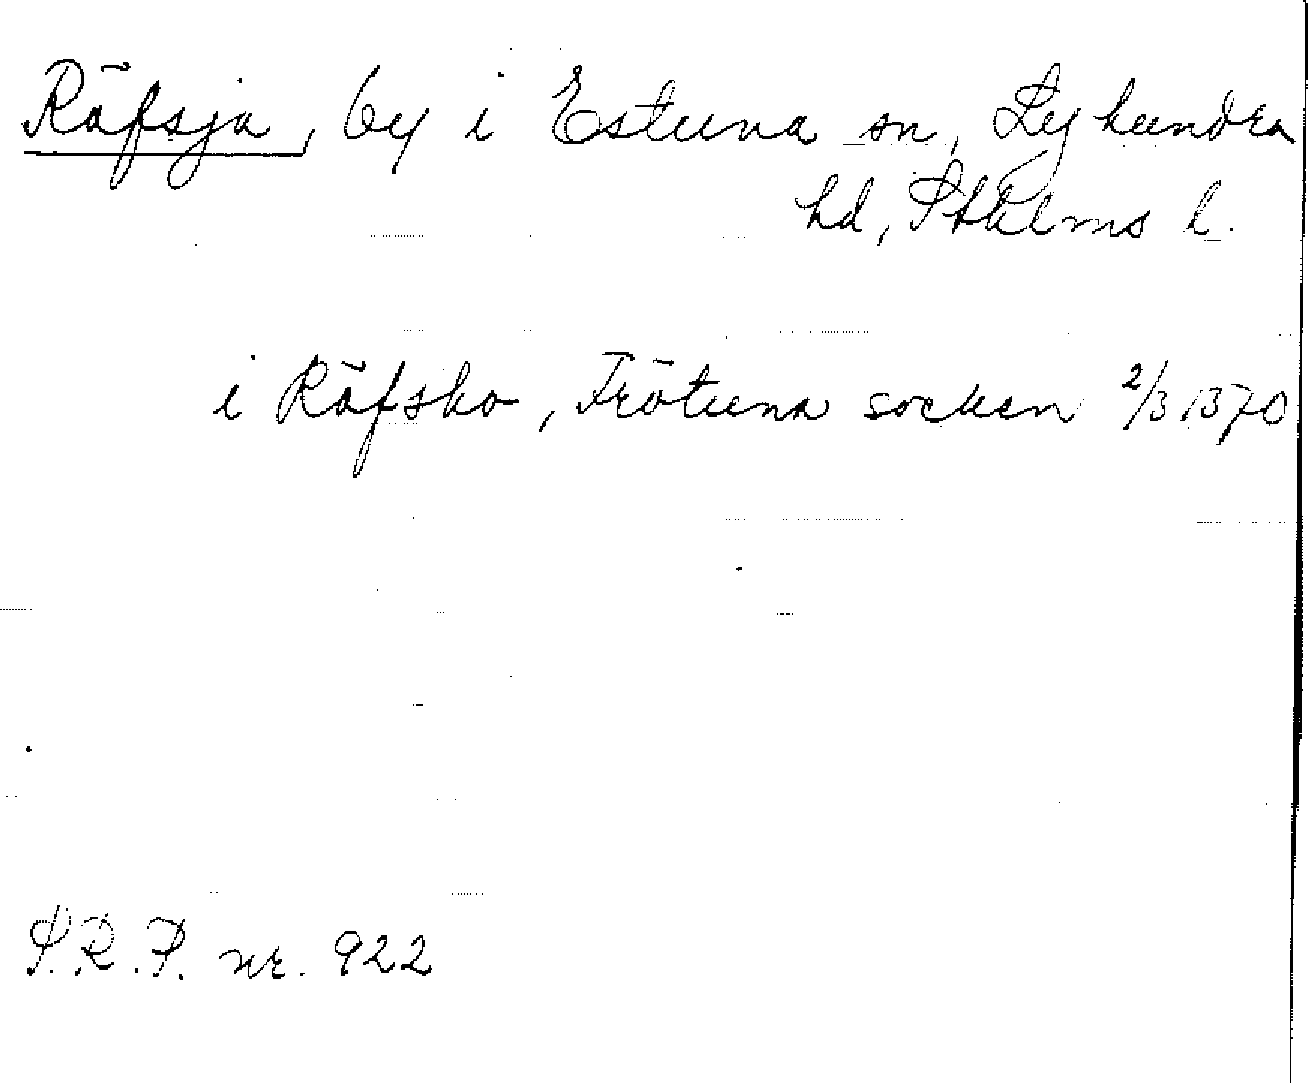 Räfsja, by i Estuna sn, Lyhundra
hd, Sthlms l.
i Räfsko, Frötuna socken 2/3 1370
S.R.P. nr. 922